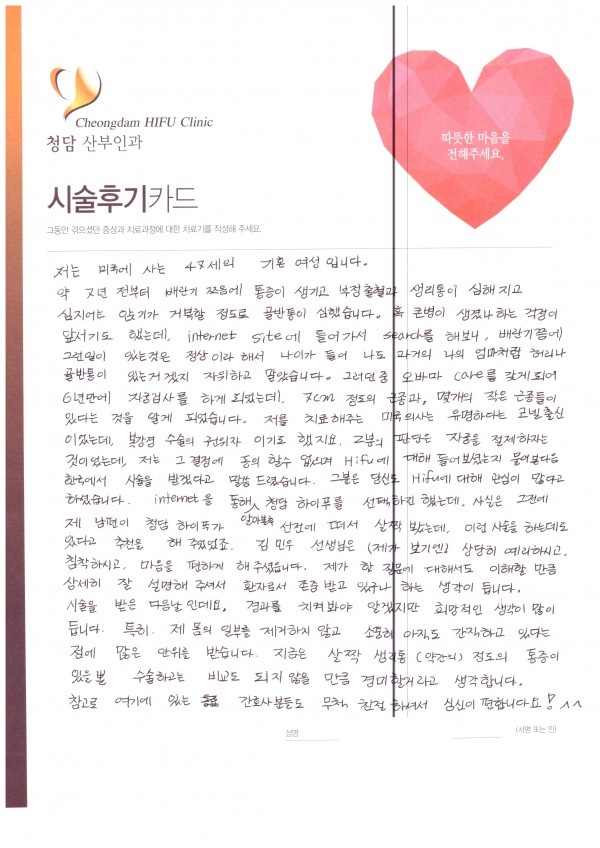 Cheongdam HIFU Clinic
청담 산부인과
따뜻한 마음을
전해주세요.
시술후기카드
그동안 겪으셨던 증상과 치료과정에 대한 치료기를 작성해 주세요.
저는 미국에 사는 48세의 기혼 여성입니다.
약 2년 전부터 배란기 쯔음에 통증이 생기고 부정출혈과 생리통이 심해지고
심지어는 앉기가 거북할 정도로 골반통이 심했습니다. 혹 큰병이 생겼나하는 걱정이
앞서기도 했는데, internet site에 들어가서 search를 해보니, 배란기쯤에
그런일이 있는것은 정상이라 해서 나이가 들어 나도 과거의 나의 엄마처럼 허리나
골반통이 있는거겠지 자위하고 말았습니다. 그러던중 오바마 care를 갖게되어
6년만에 자궁검사를 하게 되었는데, 7cm 정도의 근종과, 몇개의 작은 근종들이
있다는 것을 알게 되었습니다. 저를 치료해주는 미국의사는 유명하다는 코넬출신
이었는데, 복강경 수술의 권위자 이기도 했지요. 그분의 판단은 자궁을 절제하자는
것이었는데, 저는 그 결정에 동의 할수 없으며 Hifu에 대해 들어보셨는지 물어보다음
한국에서 시술을 받겠다고 말씀 드렸습니다. 그분은 당신도 Hifu에 대해 관심이 많다고
하였습니다. internet을 통해, 청담 하이푸를 선택하긴 했는데, 사실은 그전에
제 남편이 청담 하이푸가 선전에 떠서 살짝 봤는데, 이런 시술을 하는데도
있다고 추천을 해 주었었죠. 김민우 선생님은 (제가 보기엔) 상당히 예리하시고,
침착하시고, 마음을 편하게 해 주셨습니다. 제가 한 질문에 대해서도 이해할 만큼
상세히 잘 설명해 주셔서 환자로서 존중 받고 있구나 하는 생각이 듭니다.
시술을 받은 다음날 인데요, 경과를 지켜봐야 알겠지만 희망적인 생각이 많이
듭니다. 특히. 제 몸의 일부를 제거하지 않고 소중히 아직도 간직하고 있다는
점에 많은 안위를 받습니다. 지금은 살짝 생리통 (약간의) 정도의 통증이
있을뿐 수술하고는 비교도 되지 않을 만큼 경미할거라고 생각합니다.
참고로 여기에 있는 간호사분들도 무척 친절하셔서 심신이 편합니다요! ^^
성명
(서명 또는 인)